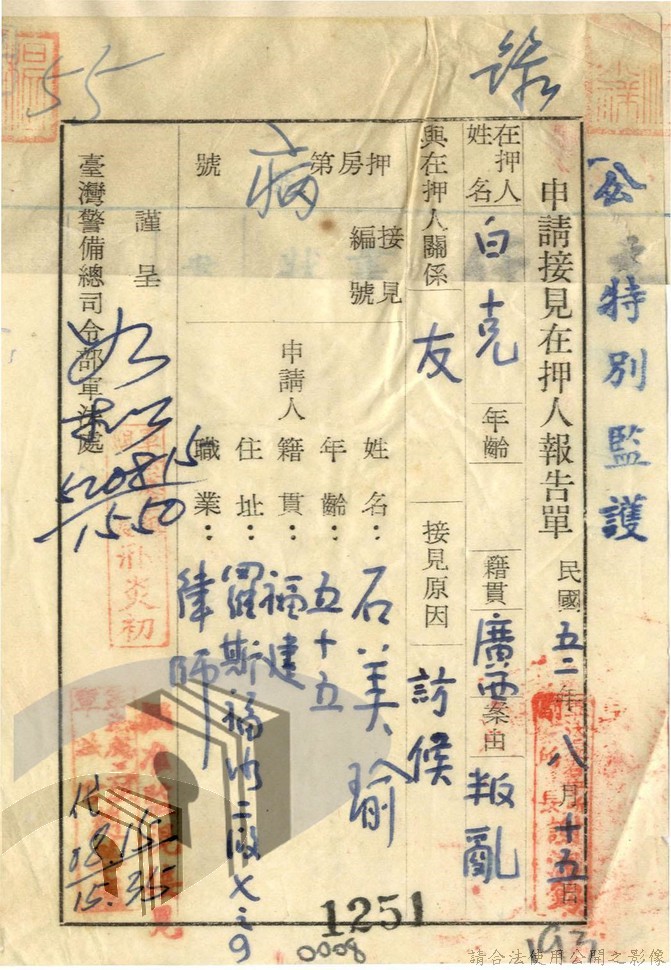 特別監護
申請接見在押人報告單
民國五二年八月十五日
在押人姓名
白克
年齡
籍貫
廣西
案由
叛亂
與在押人關係
友
接見原因
訪候
押房第病號
接見編號
申請人
姓名：石美瑜
年齡：五十五
籍貫：福建
住址：羅斯福路二段
職業：律師
謹呈
臺灣警備總司令部軍法處
520815
1550
55
08.15
15.35
1251
0008
193
請合法使用公開之影像